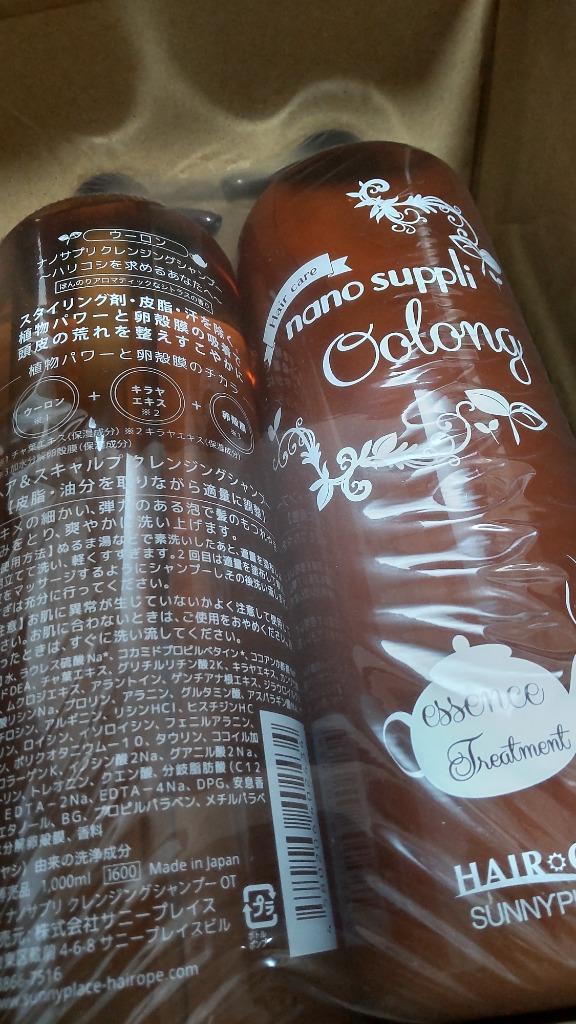 ウーロン
ナノサプリ クレンジングシャンプー
ハリコシを求めるあなたへ
ほんのりアロマティックなシトラスの香り
スタイリング剤・皮脂・汗を除く
植物パワーと卵殻膜の吸着で
頭皮の荒れを整えすこやかに
植物パワーと卵殻膜のチカラ
ウーロン ※1 + キラヤエキス ※2 + 卵殻膜 ※3
チャ葉エキス(保湿成分) ※2 キラヤエキス(保湿成分)
加水分解卵殻膜(保湿成分)
ア&スキャルプ クレンジングシャンプー
皮脂・油分を取りながら適量に調整
キメの細かい、弾力のある泡で髪のもつれや
みをとり、爽やかに洗い上げます。
使用方法】ぬるま湯などで素洗いしたあと、適量を
立てて洗い、軽くすすぎます。2回目は適量を
をマッサージするようにシャンプーしその後洗い
ぎは充分に行ってください。
意】お肌に異常が生じていないかよく注意して使用
さい。お肌に合わないときは、ご使用をおやめください。
ったときは、すぐに洗い流してください。
水、ラウレス硫酸Na*、コカミドプロピルベタイン*、
DEA、チャ葉エキス、グリチルリチン酸2K、キラヤエキス、
ムクロジエキス、アラントイン、ゲンチアナ根エキス、
酸リシンNa、プロリン、アラニン、グルタミン酸、アスパラギン
チロシン、アルギニン、リシンHCl、ヒスチジンHC
ン、ロイシン、イソロイシン、フェニルアラニン、
、ポリクオタニウム-10、タウリン、ココイル加
コラーゲンK、イノシン酸2Na、グアニル酸2Na、
リン、トレオニン、クエン酸、分岐脂肪酸(C12
EDTA-2Na、EDTA-4Na、DPG、安息香
エタノール、BG、プロピルパラベン、メチルパラベ
水分解卵殻膜、香料
ヤシ) 由来の洗浄成分
1,000ml 1600 Made in Japan
ナノサプリ クレンジングシャンプー OT
元、株式会社サニープレイス
東区乾前 4-6-8 サニープレイスビル
-7516
www.sunnyplace-hairope.com
プラ
ボトル
ポンプ
Hair care
nano suppli
Oolong
essence
Treatment
HAIR
SUNNYP